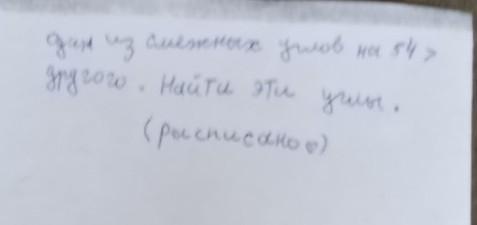 один из смежных углов на 54 >
другого. Найти эти углы.
(рысписаное)